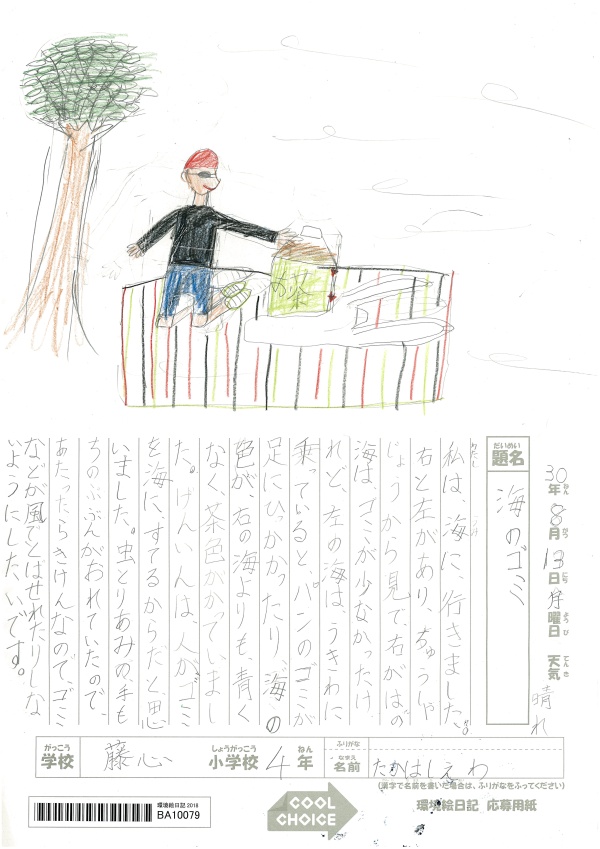 お茶
30年8月13日月曜日 天気 晴れ
ねん がつ にち ようび てんき
だいめい
題名 海のゴミ
わたし
私は、海に、行きました。
右と左があり、ちゅうしゃ
じょうから見て、右がはの
海は、ゴミが少なかったけ
れど、左の海は、うきわに
乗っていると、パンのゴミが
足にひっかかったり、海の
色が、右の海よりも、青く
なく、茶色がかっていまし
た。げんいんは、人がゴミ
を海に、すてるからだと、思
いました。虫とりあみの、手も
ちのぶぶんがおれていたので、
あたったらきけんなので、ゴミ
などが風でとばせれたりしな
いようにしたいです。
がっこう しょうがっこう ねん
学校 藤心 小学校 4年
ふりがな
なまえ
名前 たかはしえわ
(漢字で名前を書いた場合は、ふりがなをふってください)
環境絵日記 2018
BA10079
COOL
CHOICE
環境絵日記 応募用紙